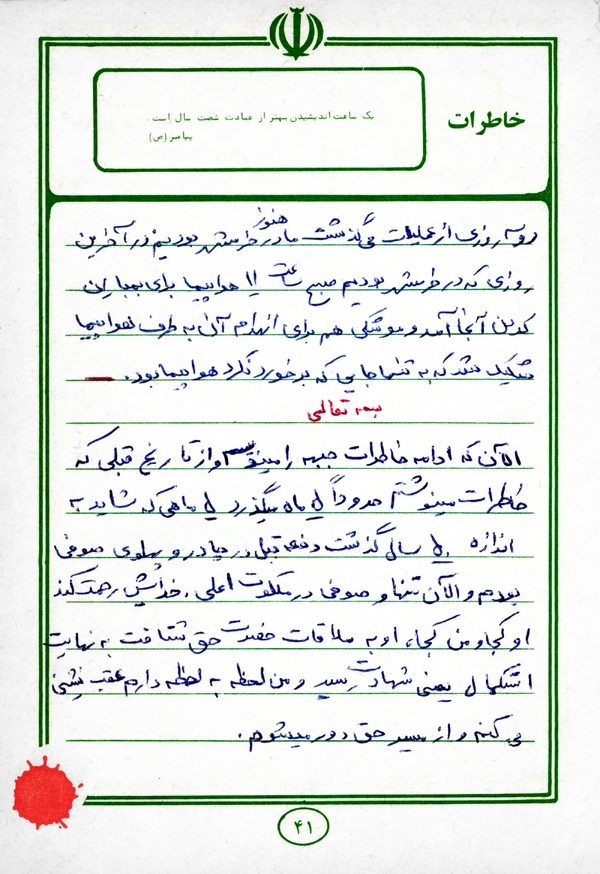 خاطرات
یک ساعت اندیشیدن بهتر از عبادت شصت سال است.
پیامبر (ص)
دو سه روزی از عملیات می‌گذشت ما هنوز در خرمشهر بودیم در آخرین
روزی که در خرمشهر بودیم صبح ساعت ۱۱ هواپیما برای بمباران
کردن آنجا آمد و موشکی هم برای انهدام آن به طرف هواپیما
شلیک شد که به تنها جایی که برخورد نکرد هواپیما بود.
بسمه تعالی
الآن که ادامه خاطرات جبهه را مینویسم و از تاریخ قبلی که
خاطرات مینوشتم حدوداً ماه میگذرد ماهی که شاید به
اندازه سال گذشت دفعه قبل در چادر و پهلوی صوفی
بودم و الآن تنها و صوفی در ملکوت اعلی. خدایش رحمت کند
او کجا و من کجا، او به ملاقات حضرت حق شتافت به نهایت
استکمال یعنی شهادت رسید و من لحظه به لحظه دارم عقب نشینی
می کنم و از مسیر حق دور میشوم.
۴۱